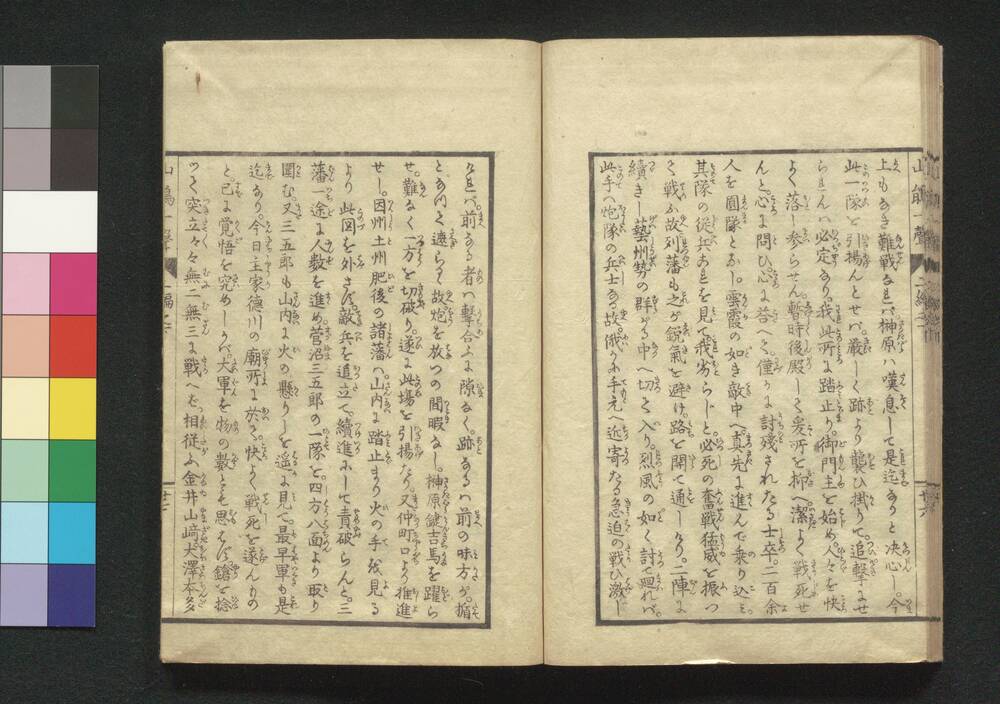 上もなき難戦なれバ榊原ハ嘆息して是迄なりと决心し。今
此一隊を引揚んとせバ。厳しく跡より襲ひ掛りて追撃なせ
られんハ必定なり。我此所に踏止り。御門主を始め人々を快
よく落し参らせん。暫時後殿して爰所を抑へ潔よく戦死せ
んと。心に問ひ心に答へて。僅かに討残されたる士卒。二百余
人を圓隊となし。雲霞の如き敵中へ。真先に進んで乗り込ミ。
其隊の従兵これを見て。我劣らじと。必死の奮戦猛威を振つ
て戦ふ故列藩も之が鋭氣を避け。路を開て通しけり。二陣に
續きし藝州勢の群がる中へ切て入り。烈風の如く討て廻れバ。
此手ハ炮隊の兵士なる故。俄かに手元へ近寄たる急迫の戦ひ激し
けれバ。前なる者ハ撃合ふに隙なく。跡なるハ前の味方が。楯
となつて遮らる故炮を放つの間暇なし。榊原鍵吉馬を躍ら
せ。難なく一方を切破り。遂に此場を引揚たり。又仲町口より推進
せし。因州土州肥後の諸藩ハ。山内に踏止まり火の手を見る
より此図を外さず敵兵を追立て。續進ミにして責破らんと。三
藩一途に人数を進め。菅沼三五郎の一隊を。四方八面より取り
圍む。又三五郎も山内に火の懸りしを遥に見て。最早軍も是
迄なり。今日主家德川の廟所に於て。快よく戦死を遂んもの
と。已に覚悟を究めしかバ。大軍を物の數とも思はず鎗を捻
つて突立々々無二無三に戦へバ。相従ふ金井山﨑犬澤本多